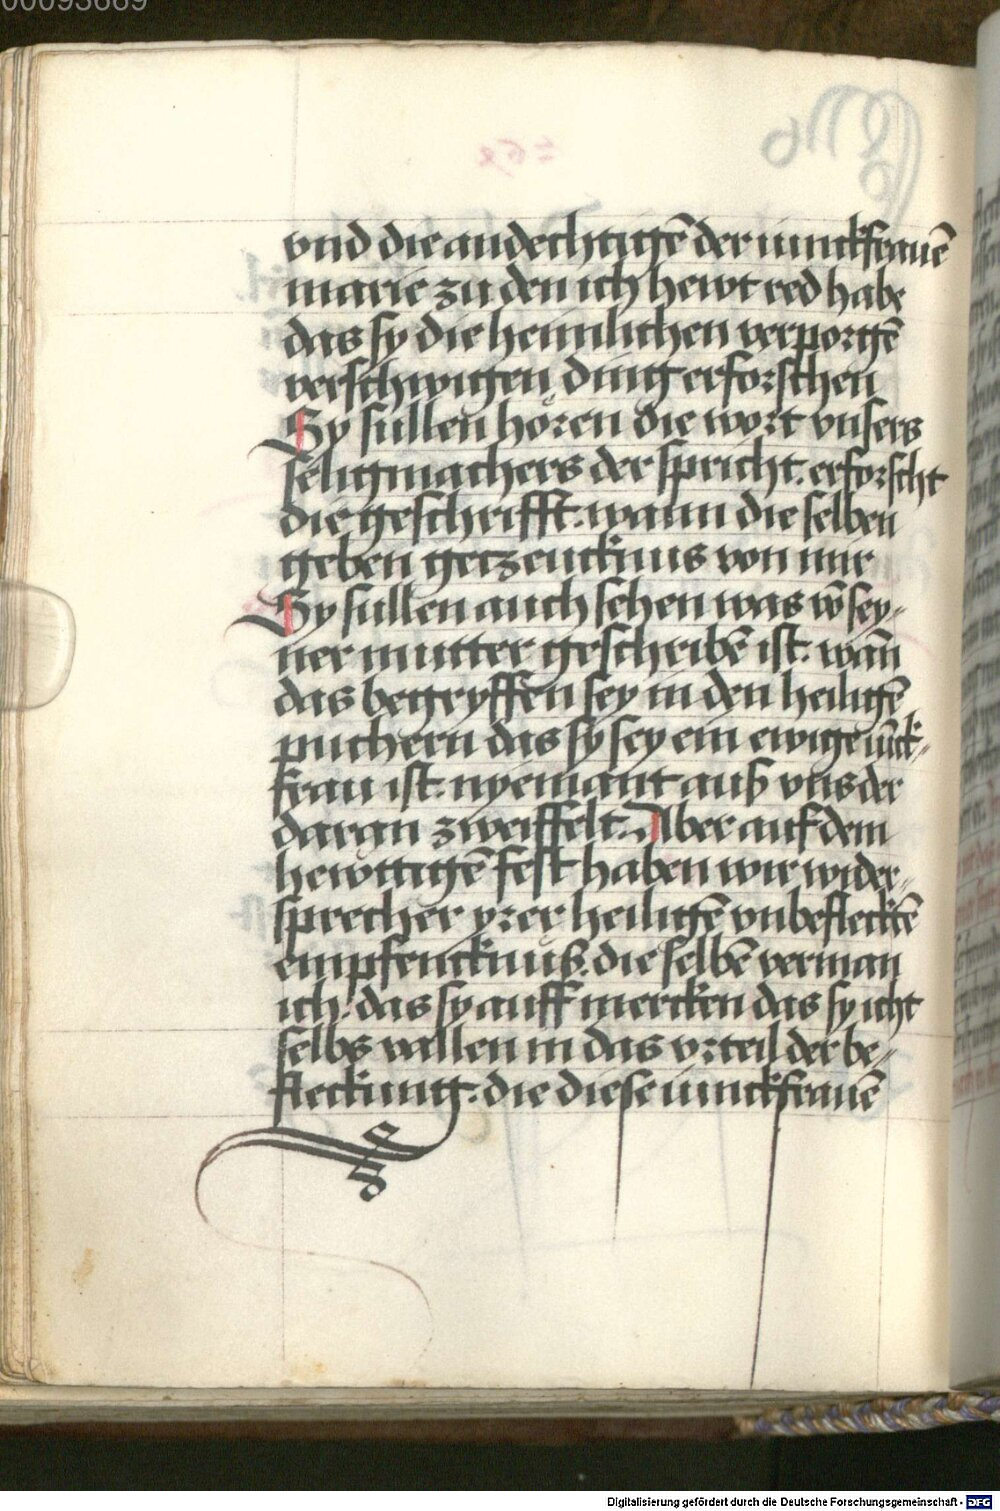 00093669
vnd die andechtigē der iunckfrauē
marie zu den ich hewt red habe
das sy die heimlichen verporgē
verschwigen ding erforschen
Sy sullen horen die wort vnsers
seligmachers der spricht. erforscht
die geschrifft. wann die selben
geben getzeucknus von mir
Sy sullen auch sehen was vō sey-
ner mutter geschribē ist. wañ
das begryffen sey in den heiligē
puchern das sy sey ein ewige iūck-
frau ist. nyemant auß vns der
daran zweiffelt. Aber auf dem
hewttigē fest haben wir wider-
sprecher yrer heiligē vnbeflecktē
empfencknuß. die selbē verman
ich. das sy auff mercken das sy icht
selbs vallen in das vrteil der be-
fleckung. die diese iunckfrauē
Digitalisierung gefördert durch die Deutsche Forschungsgemeinschaft - DFG